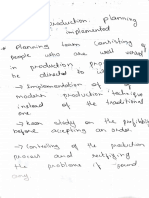 production planning
implemented
* Planning team consisting of
people who are well versed
in production process
be directed to
→ Implementation of
modern production technique
instead of the traditional
one.
→ Keen study on the profitability
before accepting an order
→ Controlling of the production
process and rectifying
the problems if found
any